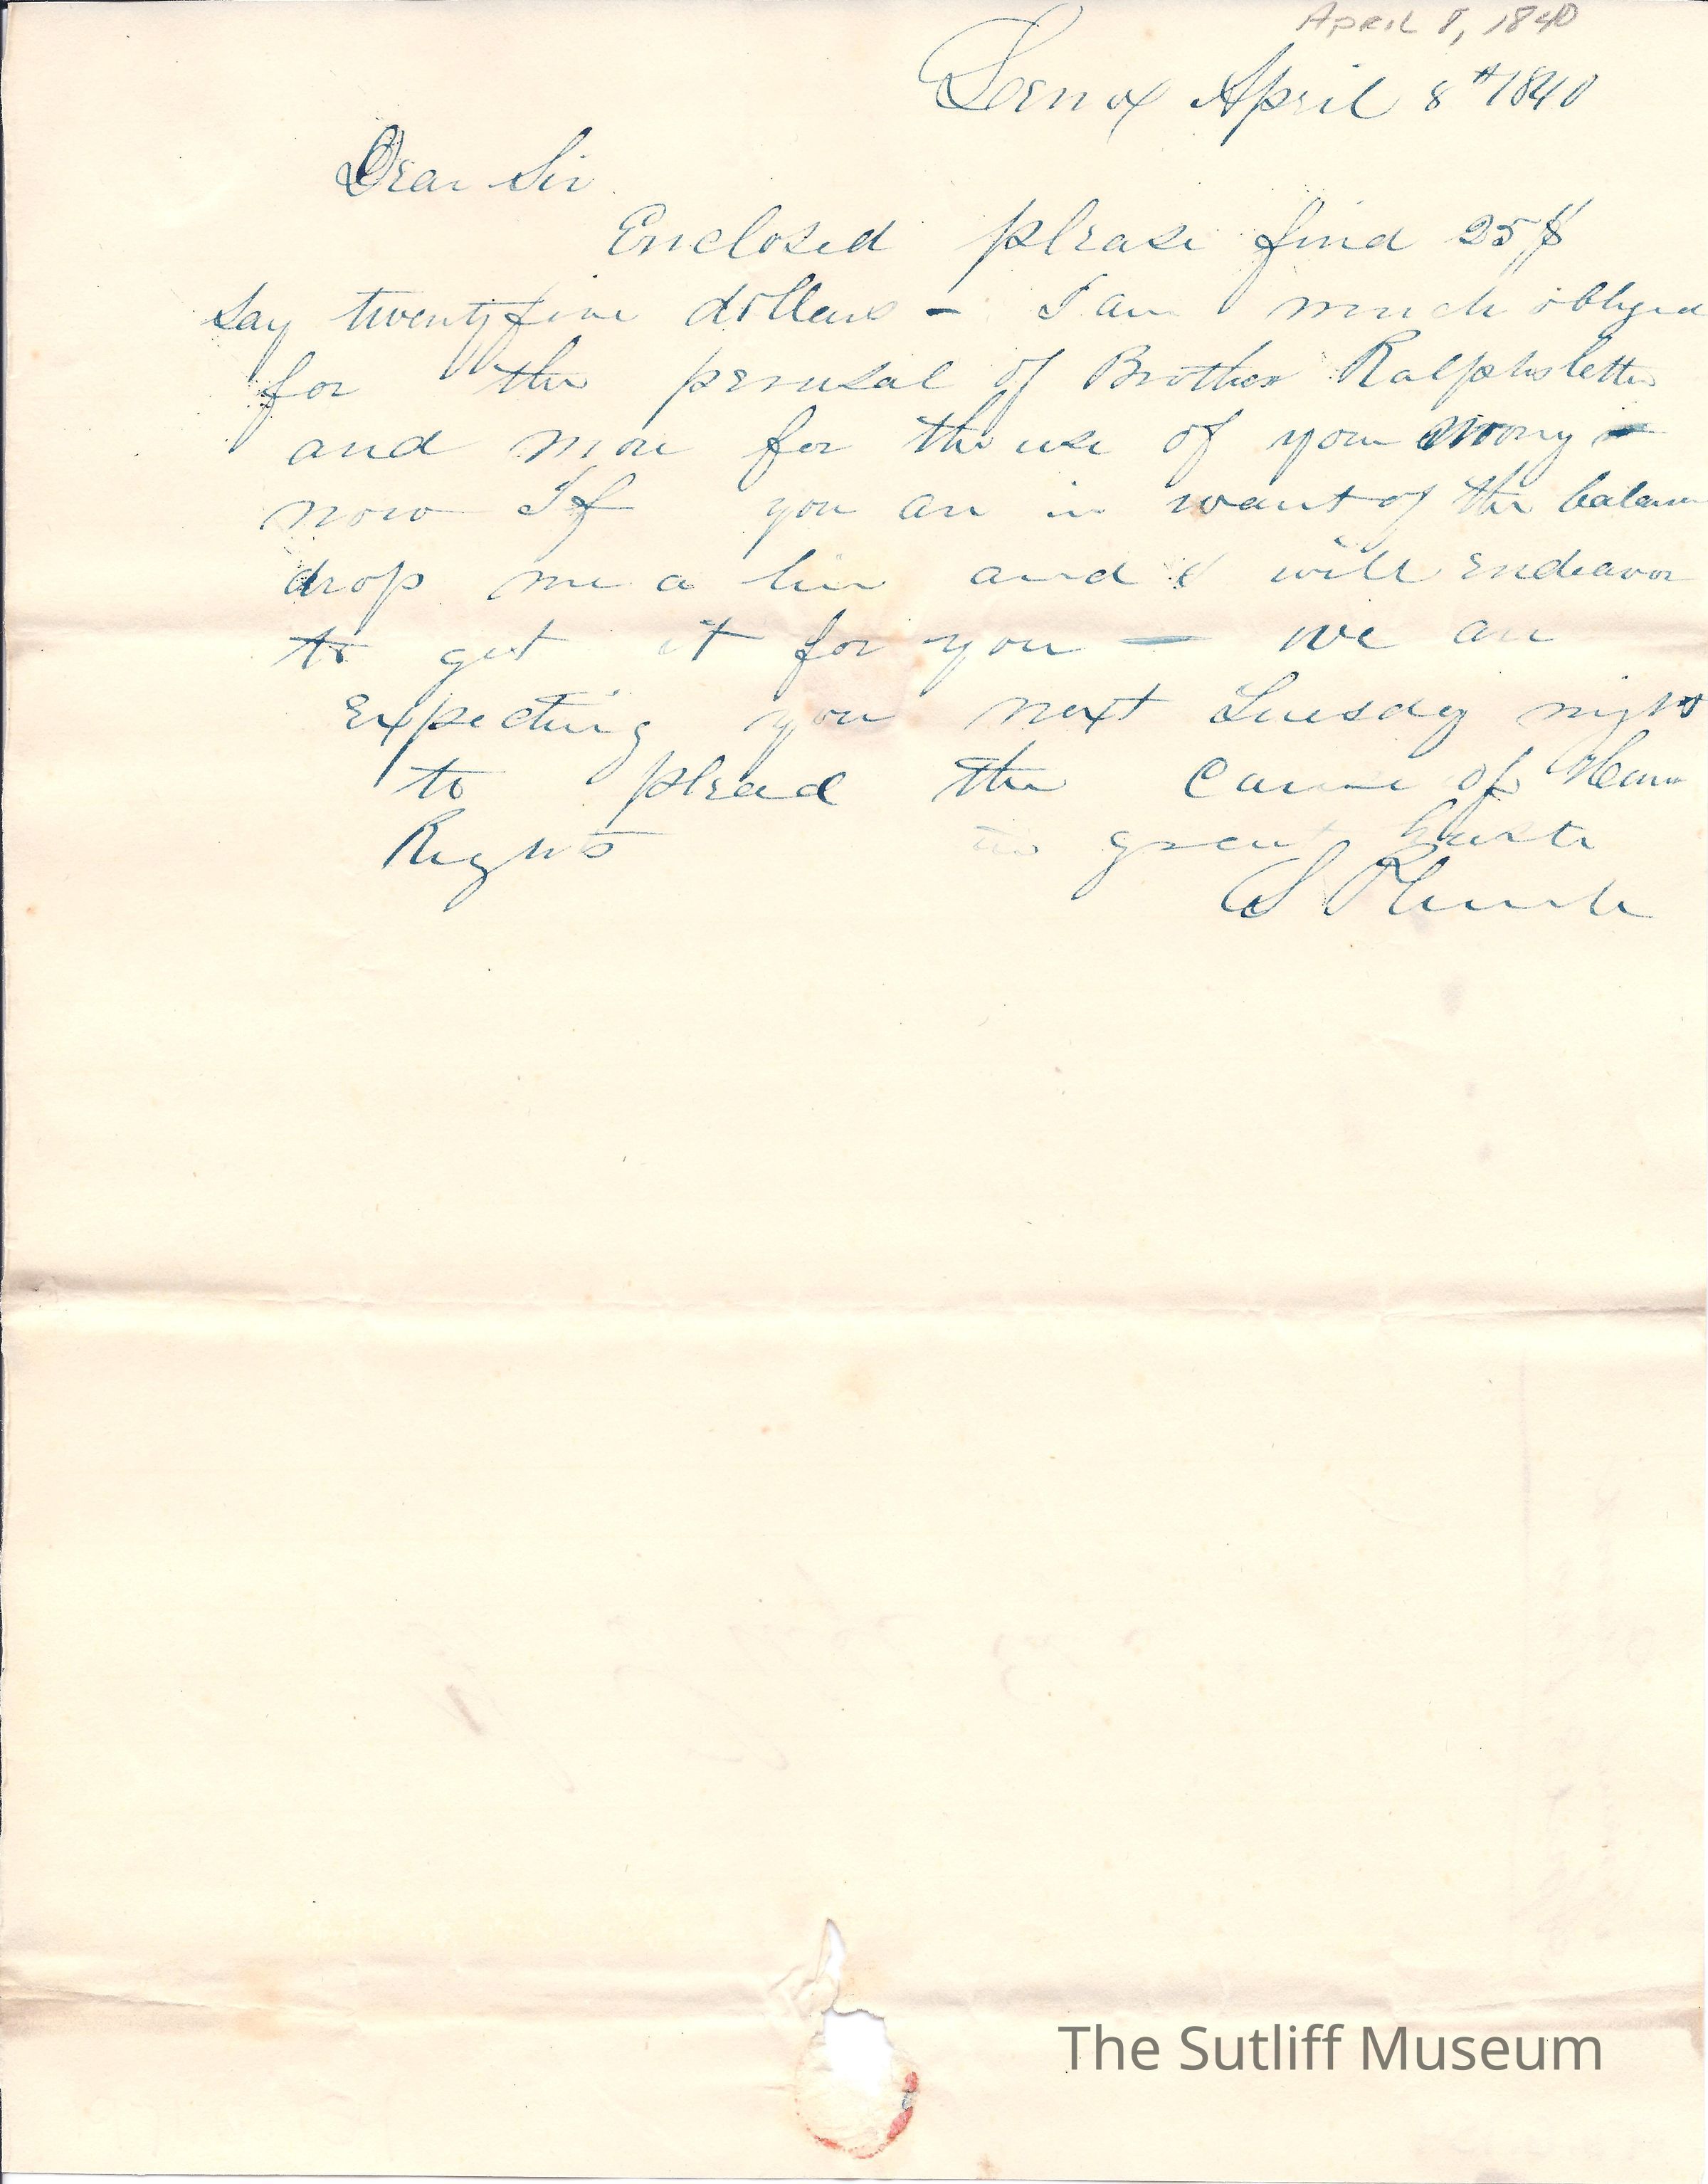 April 8, 1840
Lenox April 8th 1840
Dear Sir
Enclosed please find 25$
Say twenty five dollars - I am much obliged
for the perusal of Brother Ralphs letter
and more for the use of your mony -
now If you are in want of the balance
drop me a line and I will endeavor
to get it for you - we are
expecting you next Tuesday night
to plead the cause of
Rights in great haste
S Plumb
The Sutliff Museum